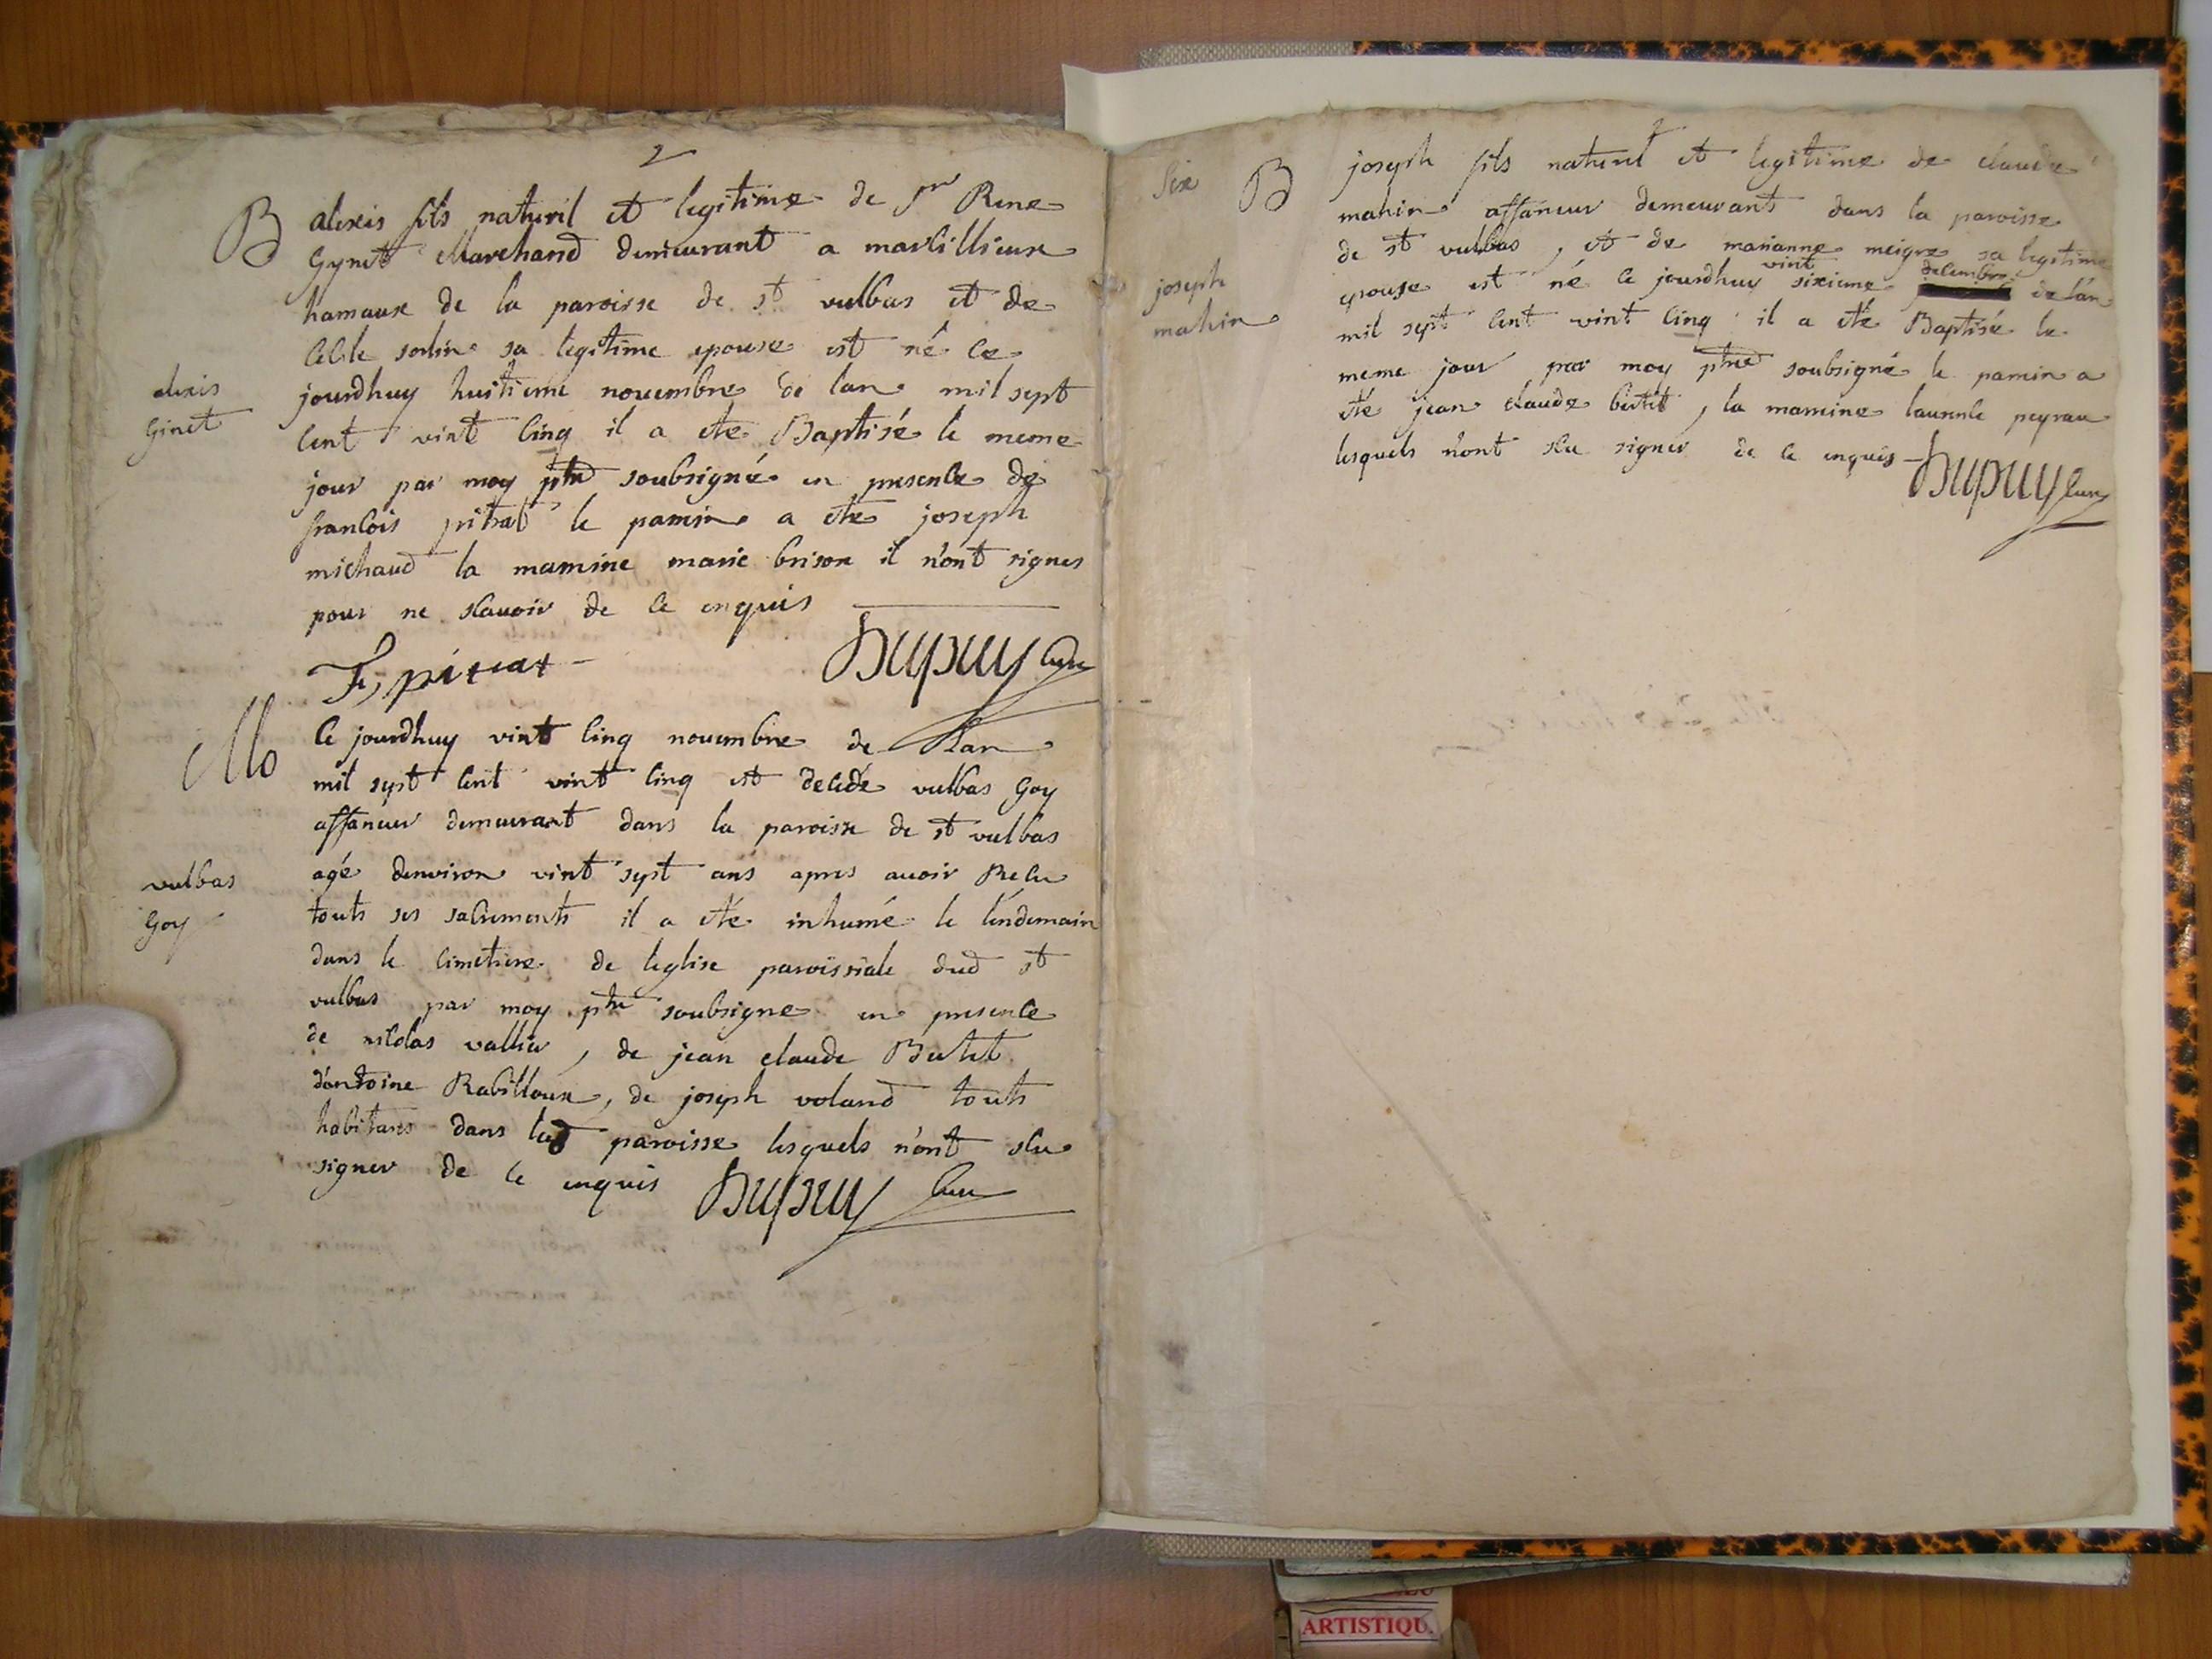 2
B alexis fils naturel et legitime de sr Rene
Gynet Marchand demeurant a marcillieux
hamaux de la paroisse de st vulbas et de
Cecile sorlin sa legitime epouse est né ce
alexis
Ginet
jourdhuy huitieme novembre de lan mil sept
cent vint cinq il a ete Baptisé le meme
jour par moy ptre soubsigné en presence de
francois pitrat le parrin a ete joseph
michaud la marrine marie brison il n'ont signes
pour ne scauoir de ce enquis
F, pitrat Dupuy Curé
Mo Ce jourdhuy vint cinq novembre de Lan
mil sept cent vint cinq est decedé vulbas Goy
affaneur demeurant dans la paroisse de st vulbas
vulbas
Goy
agé denviron vint sept ans apres auoir Recu
touts ses sacrements il a eté inhumé le lendemain
dans le cimetiere de leglise paroissiale dud st
vulbas par moy ptre soubsigne en presence
de nicolas vallier, de jean claude Butet
d'antoine Rabilloux, de joseph voland touts
habitans dans lad paroisse lesquels n'ont scu
signer de ce enquis Dupuy Curé
Six B joseph fils naturel et legitime de claude
mahin affaneur demeurant dans la paroisse
de st vulbas, et de marianne meigre sa legitime
joseph
mahin
epouse est né ce jourdhuy vint sixieme decembre de lan
mil sept cent vint cinq il a eté Baptisé le
meme jour par moy ptre soubsigné le parrin a
eté jean claude bertet, la marrine peyrau
lesquels n'ont scu signer de ce enquis Dupuy Curé
ARTISTIQU